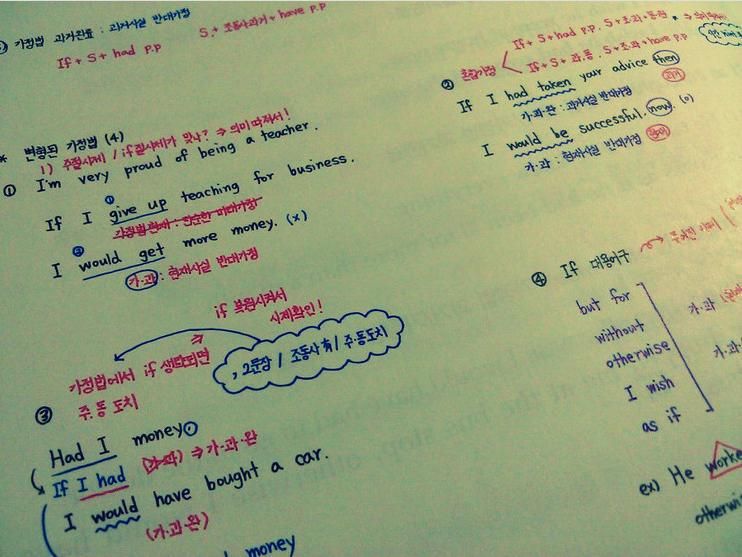 가정법 과거완료 : 과거사실 반대가정
If + S + had p.p S + 조동사과거 + have p.p
* 변형된 가정법 (4)
1) 주절시제 / if절시제가 맞나? ⇒ 의미따져서!
① I'm very proud of being a teacher.
If I give up teaching for business.
가정법현재 : 단순한 미래가정
I would get more money. (x)
가·과 : 현재사실 반대가정
② 혼합가정
If + S + had p.p. S + 조·과 + 동원
If + S + 과.동. S + 조.과 + have p.p
If I had taken your advice then
과거
가·과·완 : 과거사실 반대가정
I would be successful. now. (o)
현재
가·과 : 현재사실 반대가정
if 복원시켜서
시제확인!
, 2문장 / 조동사 有 / 주·동도치
③ 가정법에서 if 생략되면
주.동 도치
Had I money.
If I had (가·과) ⇒ 가·과·완
I would have bought a car.
(가·과·완)
money
④ If 대용어구
but for
without
otherwise
I wish
as if
가·과
ex) He worke
otherwi